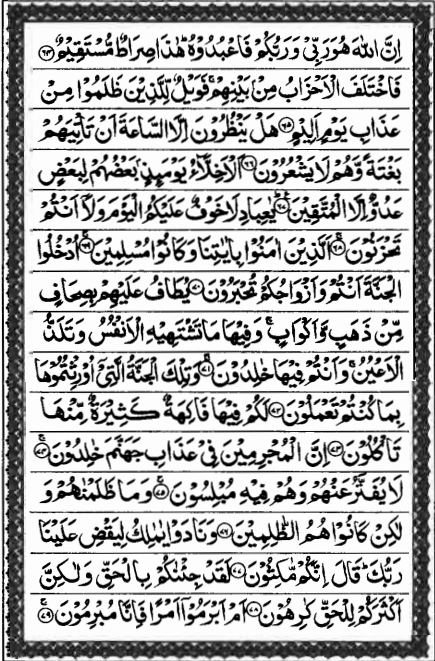 اِنَّ اللّٰهَ هُوَ رَبِّیْ وَ رَبُّكُمْ فَاعْبُدُوْهُ ؕ هٰذَا صِرَاطٌ مُّسْتَقِیْمٌ ﴿۶۴﴾
فَاخْتَلَفَ الْاَحْزَابُ مِنْۢ بَیْنِهِمْ ۚ فَوَیْلٌ لِّلَّذِیْنَ ظَلَمُوْا مِنْ
عَذَابِ یَوْمٍ اَلِیْمٍ ﴿۶۵﴾ هَلْ یَنْظُرُوْنَ اِلَّا السَّاعَةَ اَنْ تَاْتِیَهُمْ
بَغْتَةً وَّ هُمْ لَا یَشْعُرُوْنَ ﴿۶۶﴾ اَلْاَخِلَّآءُ یَوْمَىِٕذٍۭ بَعْضُهُمْ لِبَعْضٍ
عَدُوٌّ اِلَّا الْمُتَّقِیْنَ ﴿۶۷﴾ یٰعِبَادِ لَا خَوْفٌ عَلَیْكُمُ الْیَوْمَ وَ لَاۤ اَنْتُمْ
تَحْزَنُوْنَ ﴿۶۸﴾ اَلَّذِیْنَ اٰمَنُوْا بِاٰیٰتِنَا وَ كَانُوْا مُسْلِمِیْنَ ﴿۶۹﴾ اُدْخُلُوا
الْجَنَّةَ اَنْتُمْ وَ اَزْوَاجُكُمْ تُحْبَرُوْنَ ﴿۷۰﴾ یُطَافُ عَلَیْهِمْ بِصِحَافٍ
مِّنْ ذَهَبٍ وَّ اَكْوَابٍ ۚ وَ فِیْهَا مَا تَشْتَهِیْهِ الْاَنْفُسُ وَ تَلَذُّ
الْاَعْیُنُ ۚ وَ اَنْتُمْ فِیْهَا خٰلِدُوْنَ ﴿۷۱﴾ وَ تِلْكَ الْجَنَّةُ الَّتِیْۤ اُوْرِثْتُمُوْهَا
بِمَا كُنْتُمْ تَعْمَلُوْنَ ﴿۷۲﴾ لَكُمْ فِیْهَا فَاكِهَةٌ كَثِیْرَةٌ مِّنْهَا
تَاْكُلُوْنَ ﴿۷۳﴾ اِنَّ الْمُجْرِمِیْنَ فِیْ عَذَابِ جَهَنَّمَ خٰلِدُوْنَ ﴿۷۴﴾
لَا یُفَتَّرُ عَنْهُمْ وَ هُمْ فِیْهِ مُبْلِسُوْنَ ﴿۷۵﴾ وَ مَا ظَلَمْنٰهُمْ وَ
لٰكِنْ كَانُوْا هُمُ الظّٰلِمِیْنَ ﴿۷۶﴾ وَ نَادَوْا یٰمٰلِكُ لِیَقْضِ عَلَیْنَا
رَبُّكَ ؕ قَالَ اِنَّكُمْ مّٰكِثُوْنَ ﴿۷۷﴾ لَقَدْ جِئْنٰكُمْ بِالْحَقِّ وَ لٰكِنَّ
اَكْثَرَكُمْ لِلْحَقِّ كٰرِهُوْنَ ﴿۷۸﴾ اَمْ اَبْرَمُوْۤا اَمْرًا فَاِنَّا مُبْرِمُوْنَ ﴿۷۹﴾